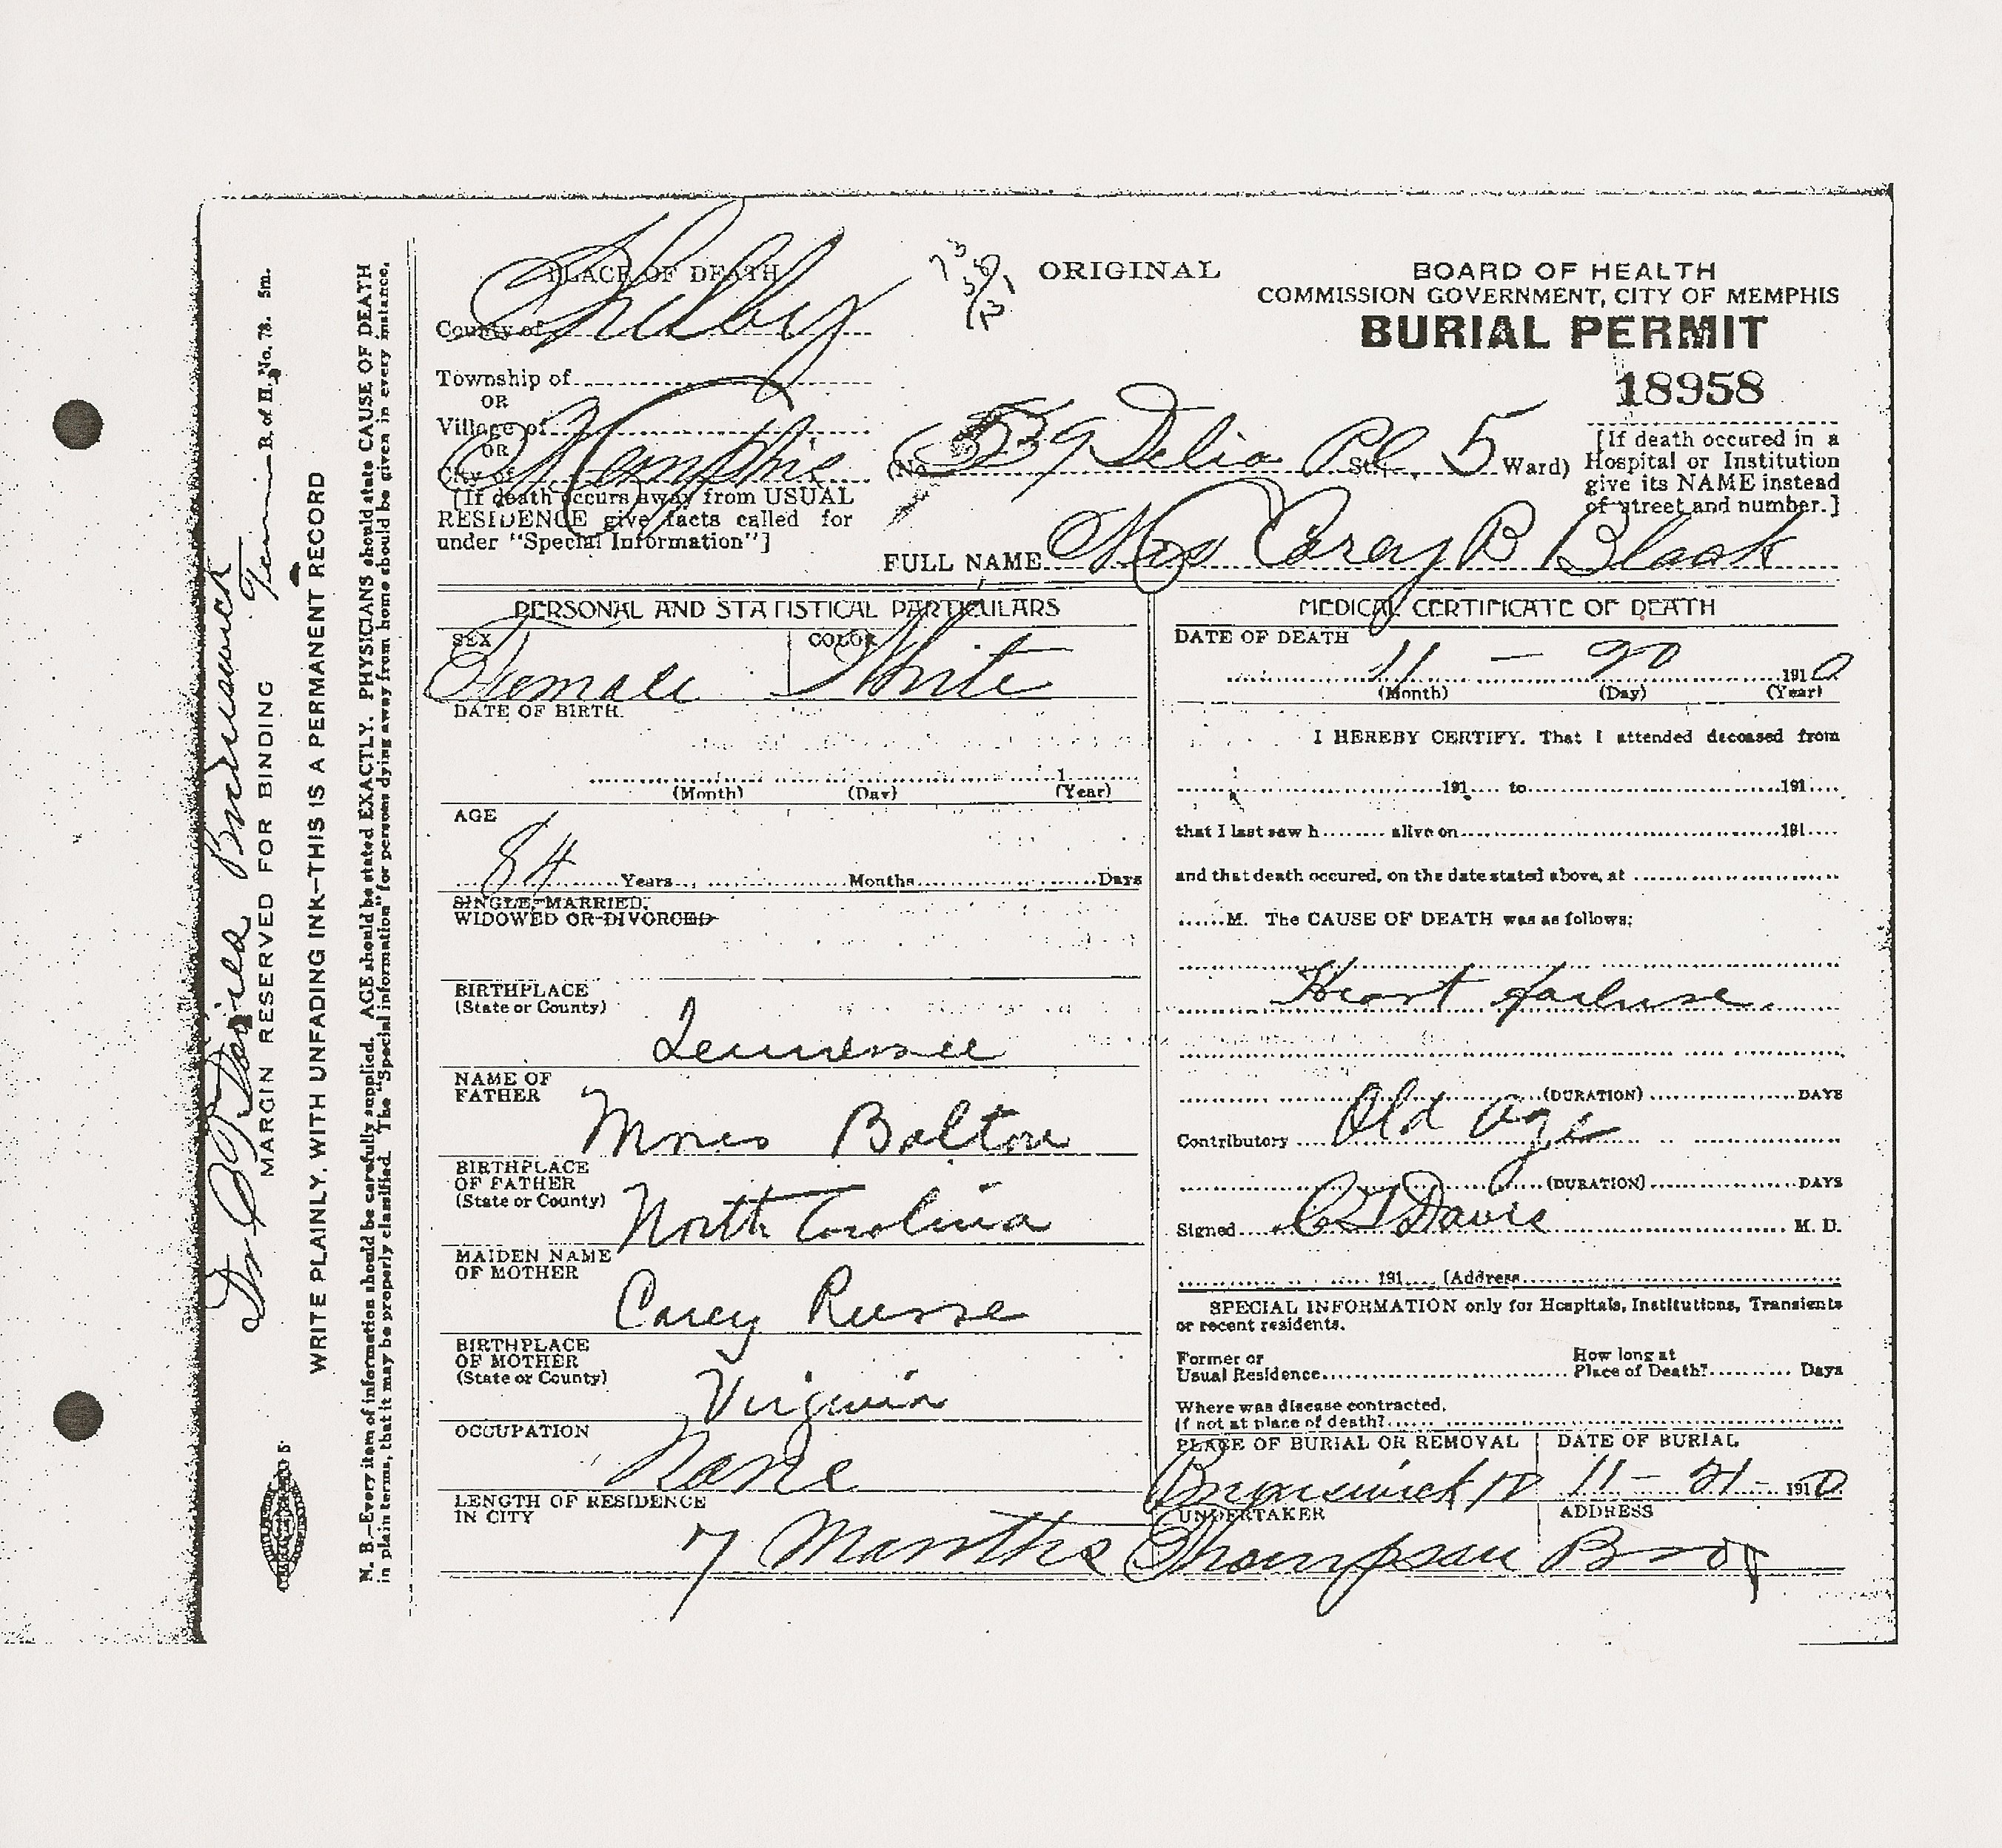 PLACE OF DEATH
County of Shelby
Township of
OR
Village of
OR
City of Memphis
[If death occurs away from USUAL
RESIDENCE give facts called for
under "Special Information"]
ORIGINAL
BOARD OF HEALTH
COMMISSION GOVERNMENT, CITY OF MEMPHIS
BURIAL PERMIT
18958
(No. 539 Delia Pl St., 5 Ward)
[If death occured in a
Hospital or Institution
give its NAME instead
of street and number.]
FULL NAME Mrs Carey B Black
PERSONAL AND STATISTICAL PARTICULARS
SEX Female
COLOR White
DATE OF BIRTH
1
(Month) (Day) (Year)
AGE
84 Years Months Days
SINGLE, MARRIED,
WIDOWED OR DIVORCED
BIRTHPLACE
(State or County)
Tennessee
NAME OF
FATHER
Bolton
BIRTHPLACE
OF FATHER
(State or County)
North Carolina
MAIDEN NAME
OF MOTHER
Carey
BIRTHPLACE
OF MOTHER
(State or County)
Virginia
OCCUPATION
None
LENGTH OF RESIDENCE
IN CITY
7 Months
MEDICAL CERTIFICATE OF DEATH
DATE OF DEATH
11 - 20 1910
(Month) (Day) (Year)
I HEREBY CERTIFY. That I attended deceased from
191 to 191
that I last saw h alive on 191
and that death occured, on the date stated above, at
M. The CAUSE OF DEATH was as follows:
Heart failure
(DURATION) DAYS
Contributory Old age
(DURATION) DAYS
Signed C T Davis M. D.
191 (Address
SPECIAL INFORMATION only for Hospitals, Institutions, Transients
or recent residents.
Former or
Usual Residence
How long at
Place of Death? Days
Where was disease contracted,
if not at place of death?
PLACE OF BURIAL OR REMOVAL
Brunswick
DATE OF BURIAL
11 - 21 - 1910
UNDERTAKER
Thompson Bros
ADDRESS
Brunswick Tenn
B. of H. No. 73. 5m.
MARGIN RESERVED FOR BINDING
WRITE PLAINLY, WITH UNFADING INK—THIS IS A PERMANENT RECORD
N. B.—Every item of information should be carefully supplied. AGE should be stated EXACTLY. PHYSICIANS should state CAUSE OF DEATH
in plain terms, that it may be properly classified. The "Special information" for persons dying away from home should be given in every instance.